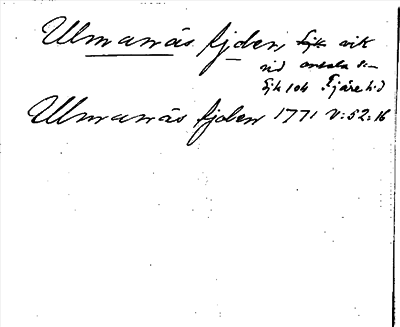 Ulmanäs fjden, vik
vid
Fjäre hd
Ulmanäs fjden 1771 V:52:16